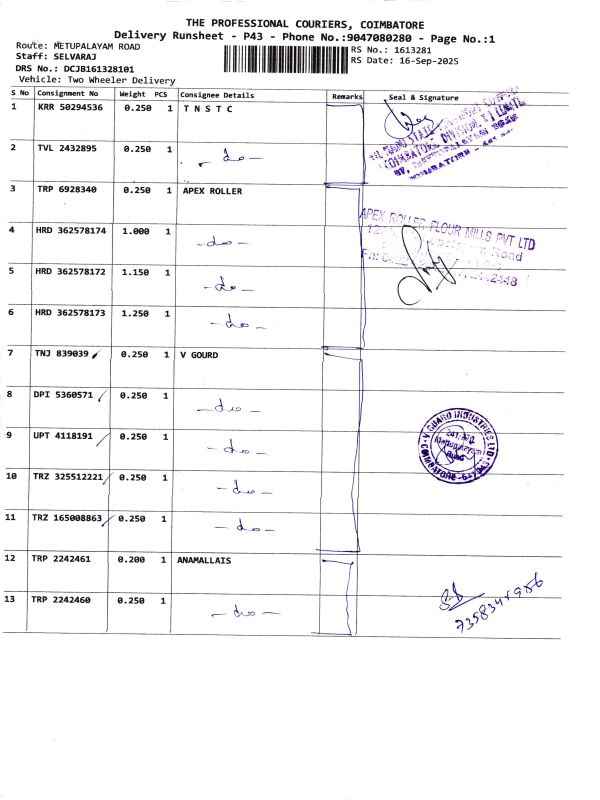 THE PROFESSIONAL COURIERS, COIMBATORE
Delivery Runsheet - P43 - Phone No.:9047080280 - Page No.:1
Route: METUPALAYAM ROAD
RS No.: 1613281
Staff: SELVARAJ
RS Date: 16-Sep-2025
DRS No.: DCJB161328101
Vehicle: Two Wheeler Delivery
S No Consignment No Weight PCS Consignee Details Remarks Seal & Signature
1 KRR 50294536 0.250 1 T N S T C
2 TVL 2432895 0.250 1 - do -
3 TRP 6928340 0.250 1 APEX ROLLER
APEX ROLLER FLOUR MILLS PVT LTD
4 HRD 362578174 1.000 1 - do -
Road
5 HRD 362578172 1.150 1 - do -
6 HRD 362578173 1.250 1 - do -
7 TNJ 839039 0.250 1 V GOURD
8 DPI 5360571 0.250 1 - do -
9 UPT 4118191 0.250 1 - do -
V GUARD INDUSTRIES LTD
COIMBATORE
10 TRZ 325512221 0.250 1 - do -
11 TRZ 165008863 0.250 1 - do -
12 TRP 2242461 0.200 1 ANAMALLAIS
13 TRP 2242460 0.250 1 - do -